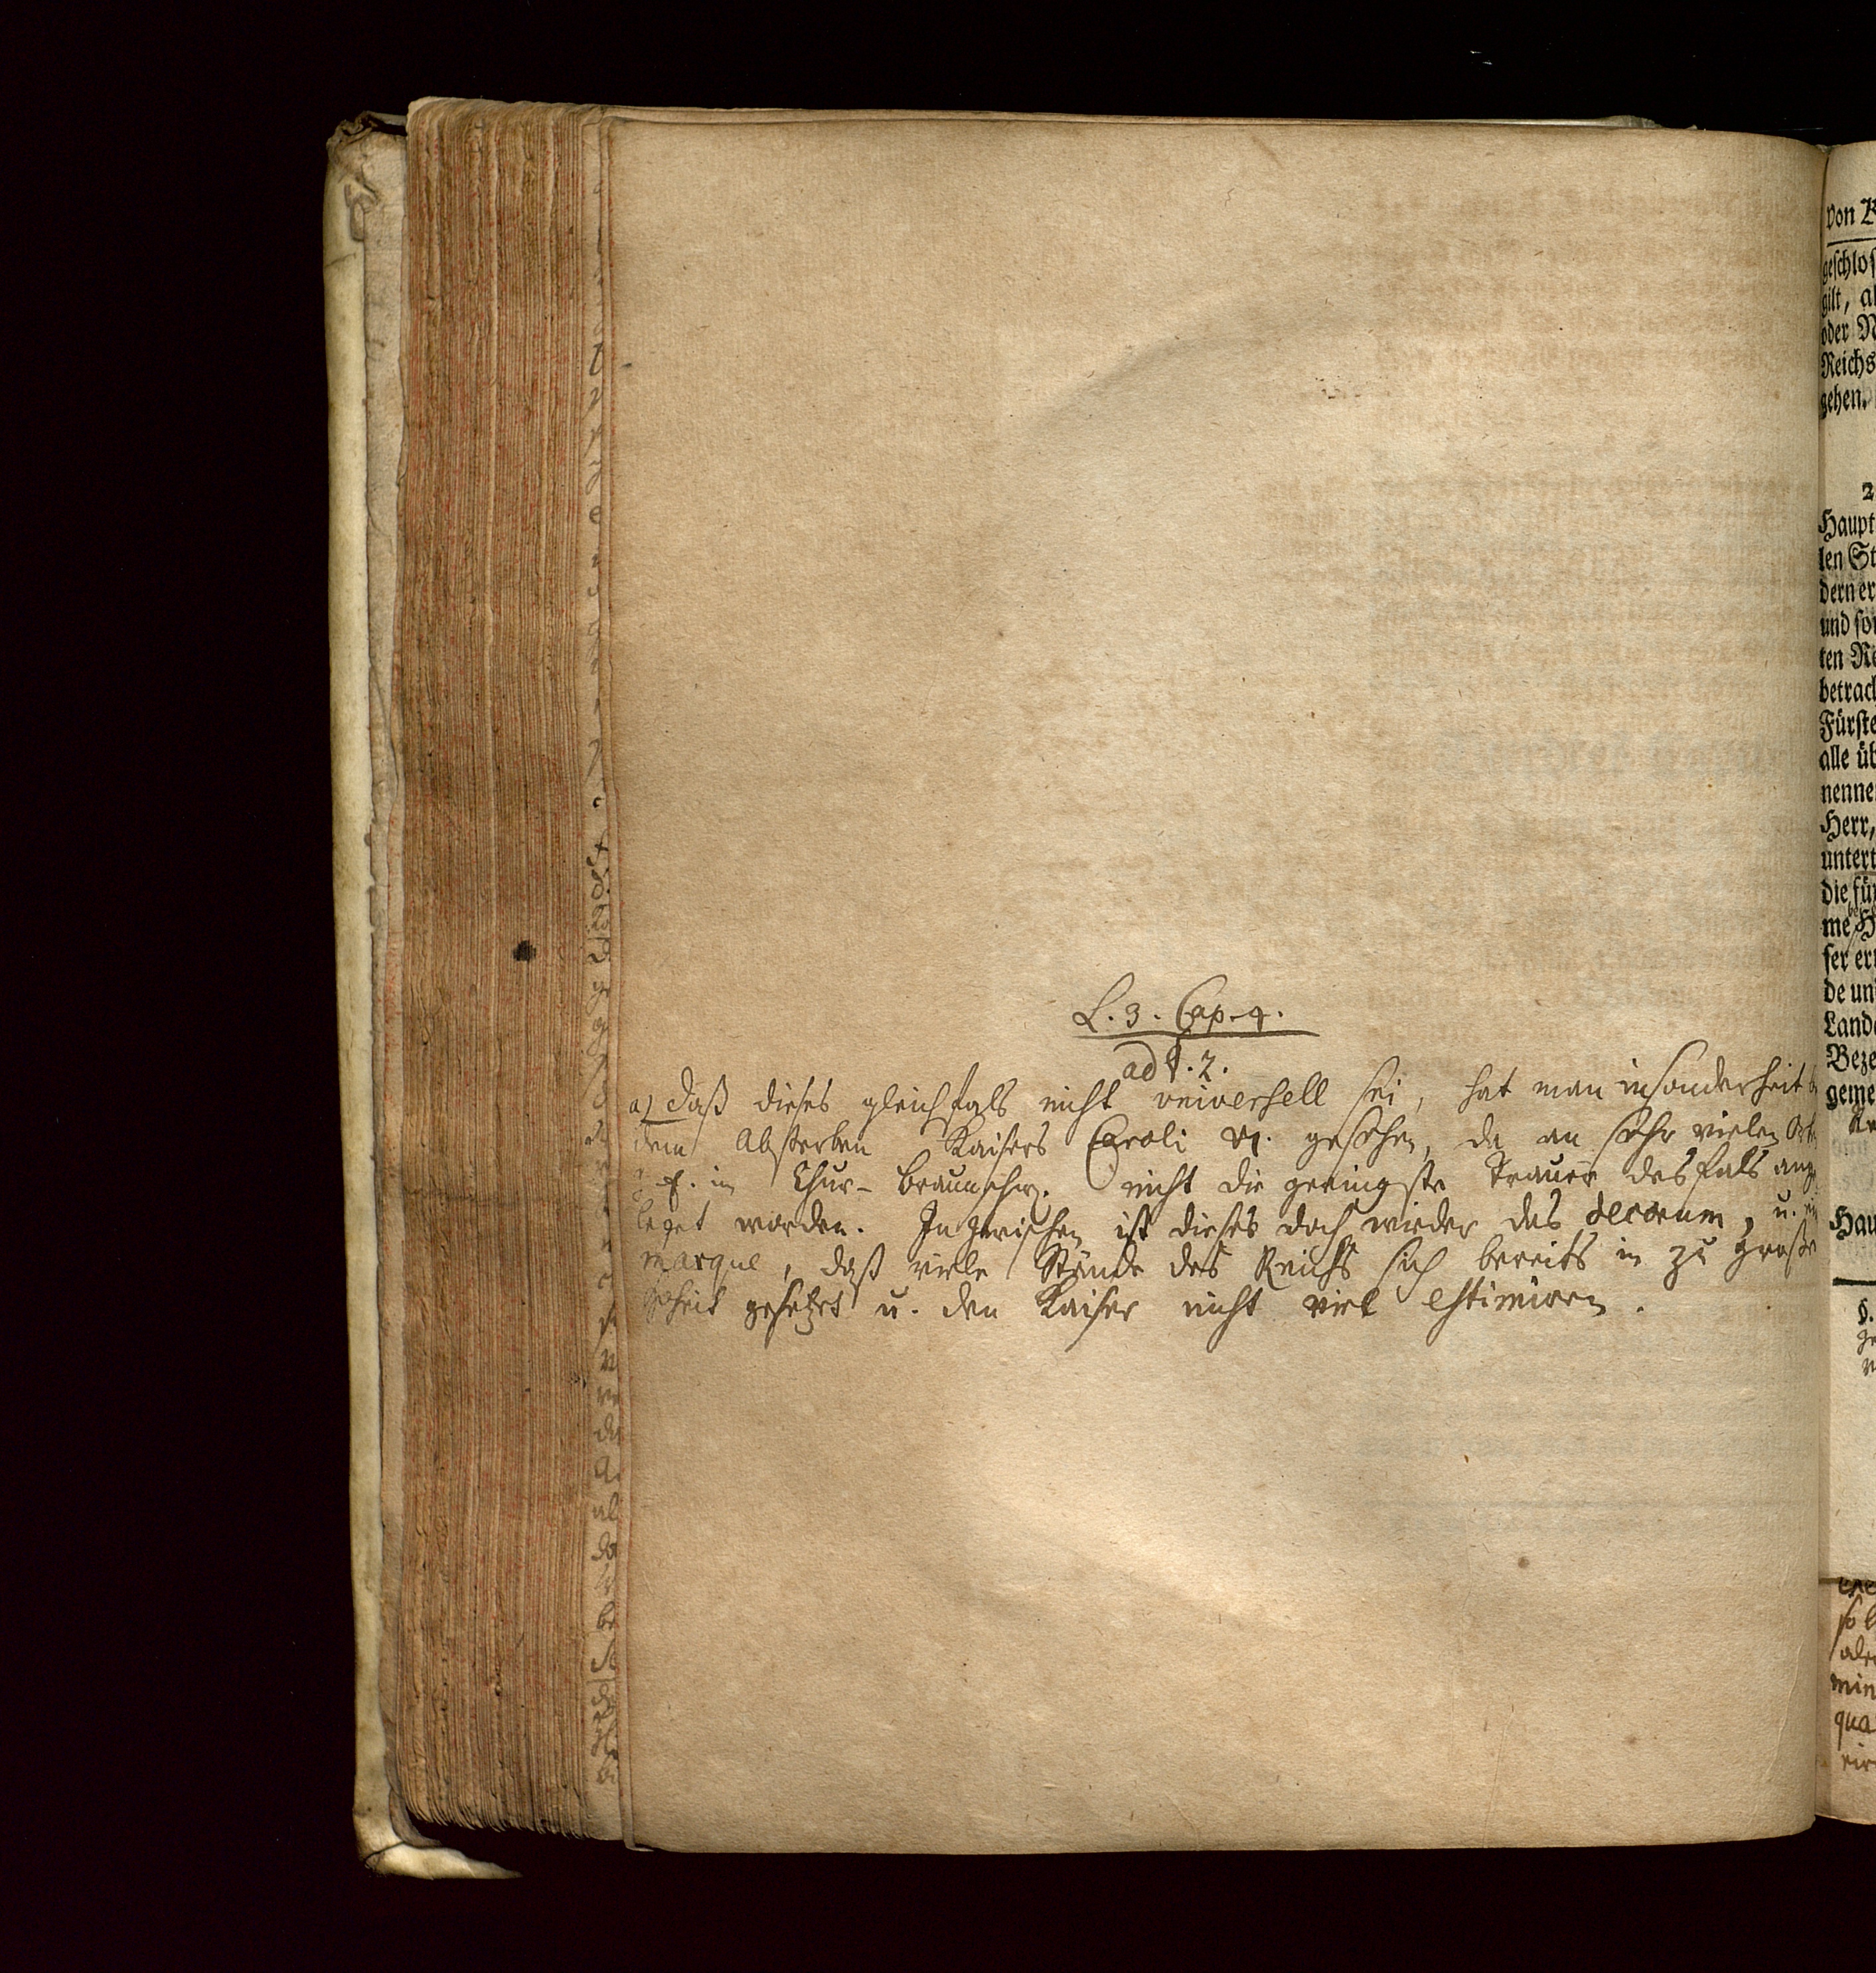 L. 3. Cap. 4.
ad §. 2.
a) Daß dieses gleichfals nicht universell sei, hat man insonderheit
dem Absterben Kaisers Caroli VI. gesehen, da an sehr vielen Orten
z. E. in Chur-Braunschw. nicht die geringste Trauer desfals ange
leget worden. Inzwischen ist dieses doch wieder das decorum, u. ein
marque, daß viele Stände des Reichs sich bereits in zu große
gesetzt u. den Kaiser nicht viel estimiren.
von
geschlos
gilt, al
oder N
Reichs
gehen.
2
Haupt
len St
dern er
und so
ten Re
betrach
Fürste
alle üb
nenne
Herr,
untert
die für
me H
ser er
de un
Land
Beze
geme
Hau
so b
min
qua